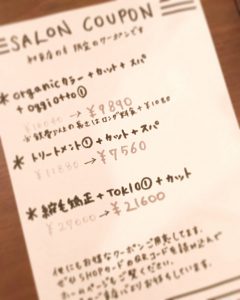 SALON COUPON
限定のクーポンです
* organicカラー + カット + スパ
+ oggiotto①
→ ¥9890
* トリートメント① + カット + スパ
¥11880 → ¥7560
* 縮毛矯正 + TOKIO① + カット
¥27000 → ¥21600
他にもお得なクーポンご用意してます。
ゼひSHOPカードのQRコードを読み込んで
ホームページをご覧ください。
お待ちしています。